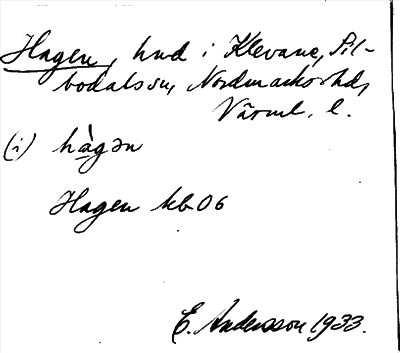 Hagen, hmd i Klevane, Sil-
bodals sn, Nordmarks hd,
Värml. l.
(i) hàgən
Hagen kb 06
E. Andersson 1933.